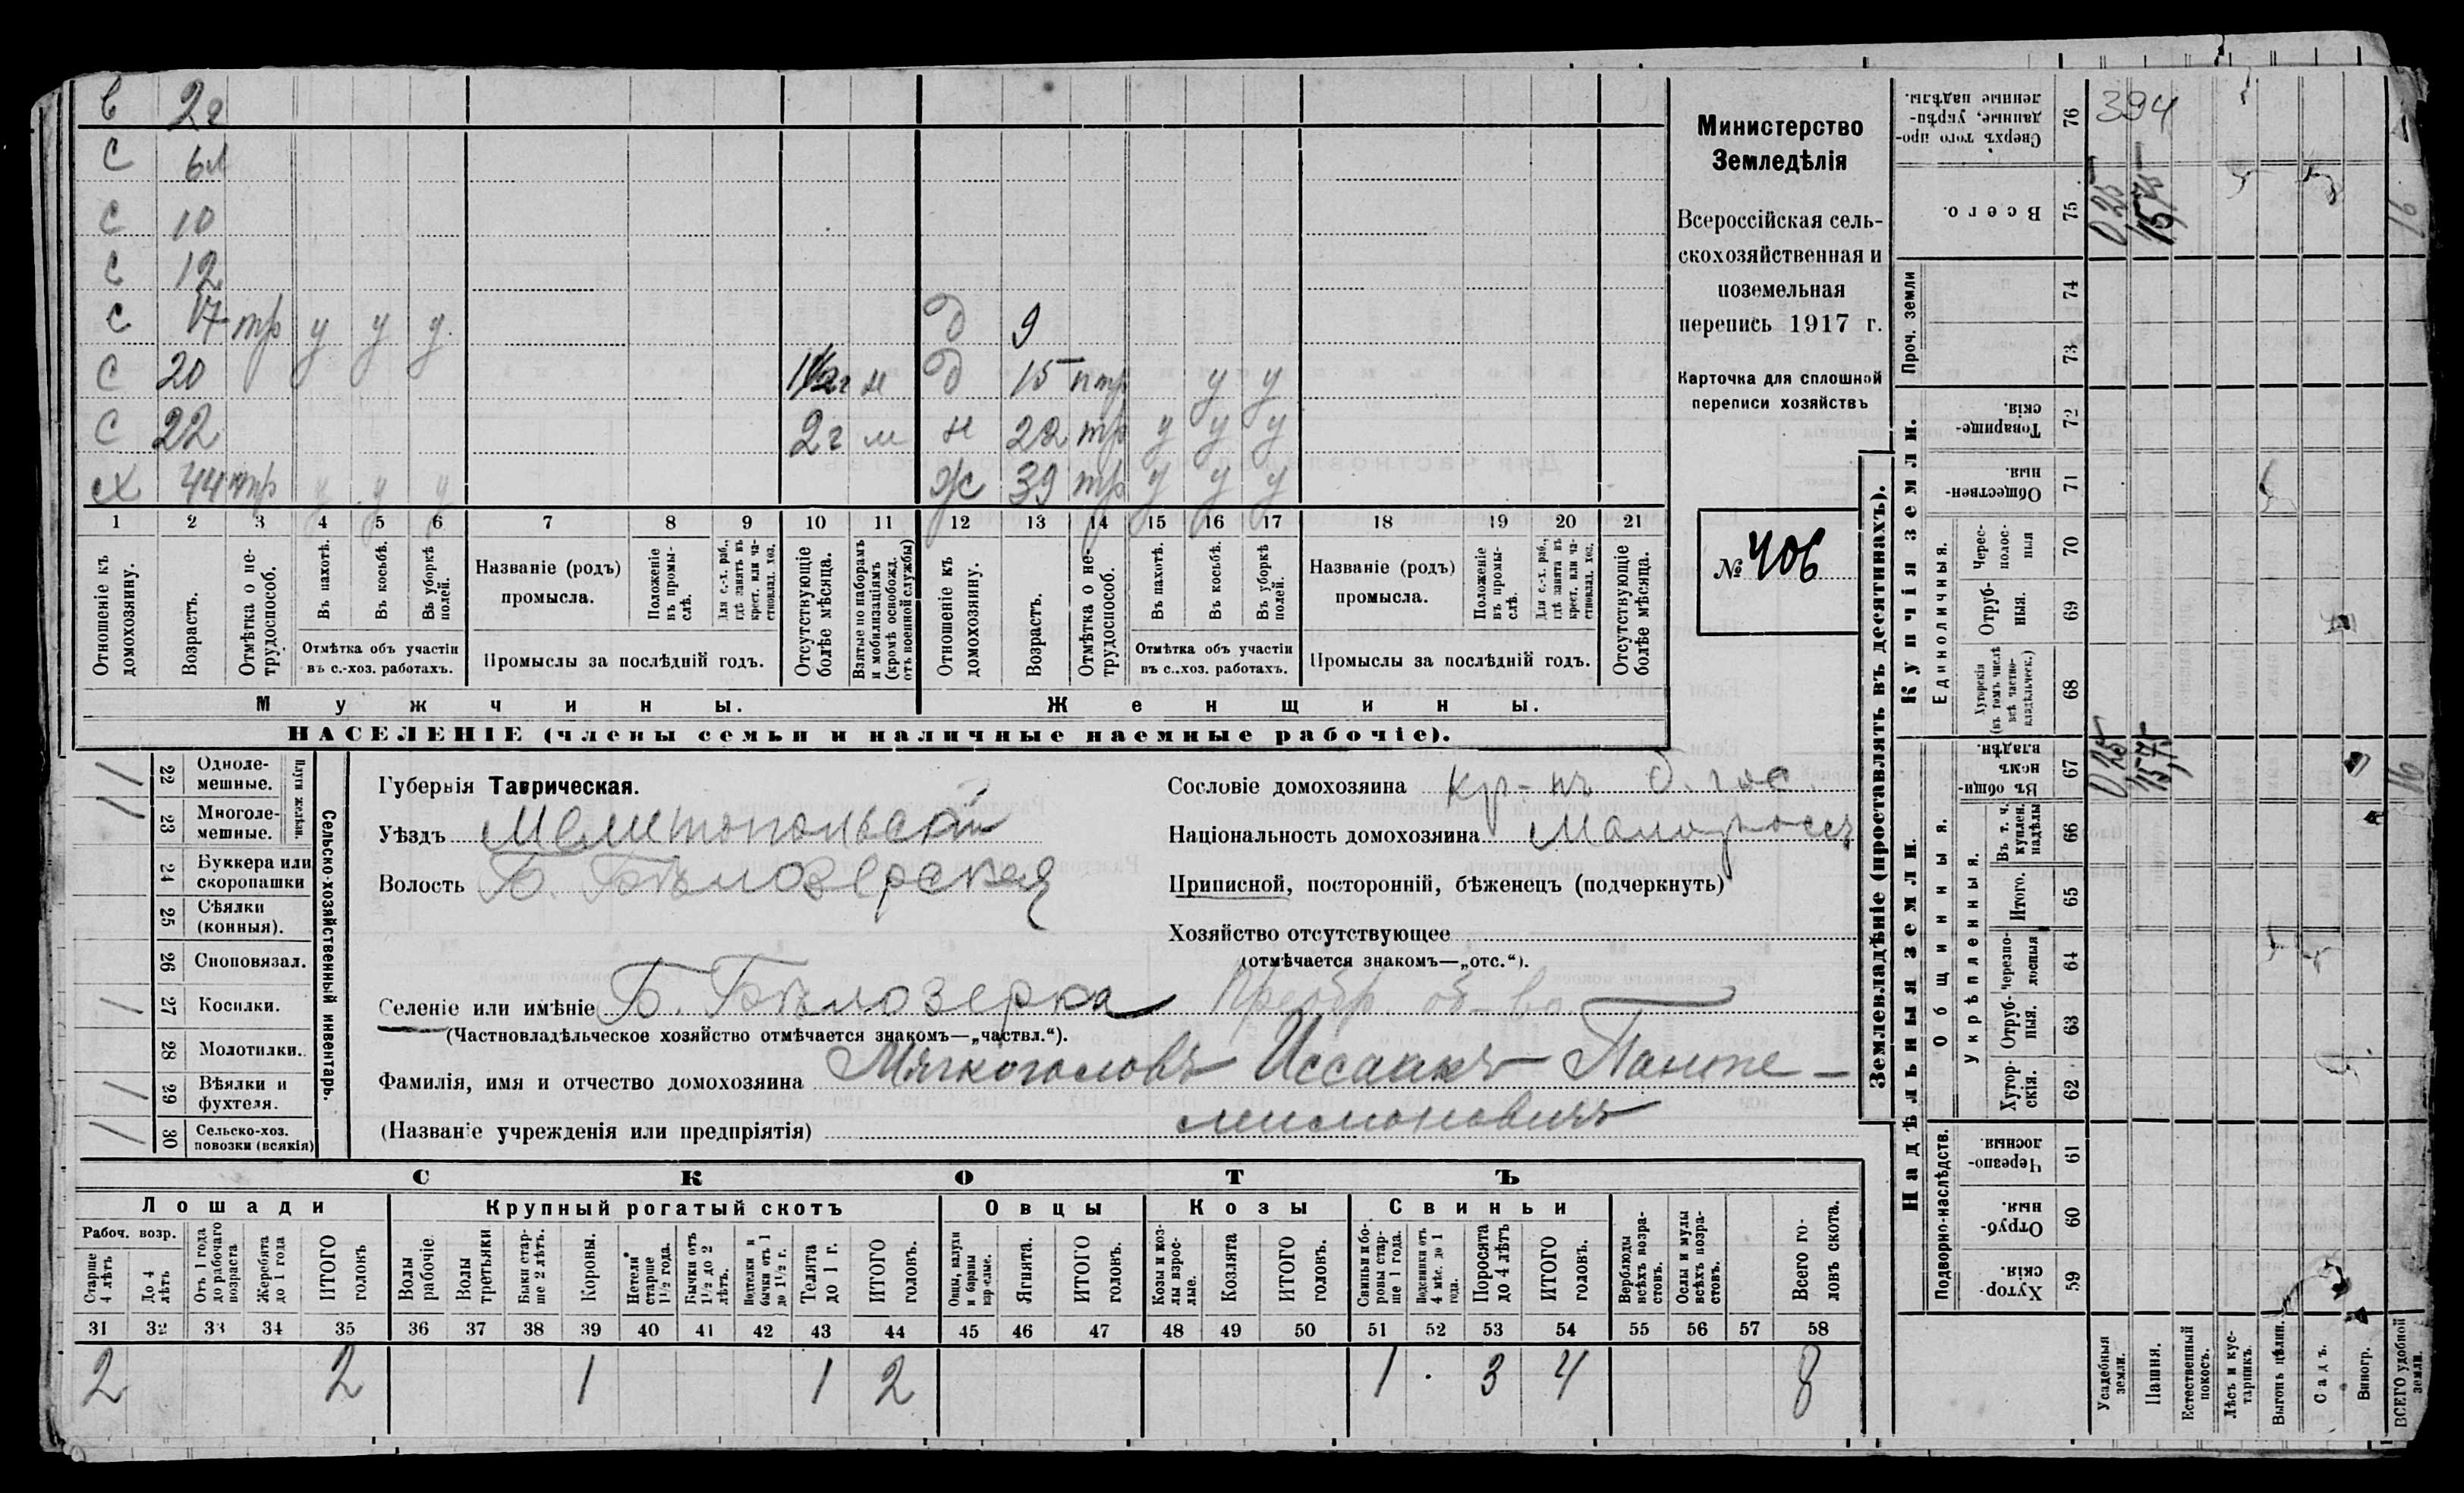 в 2г
с 6л
с 10
с 12
с 17 тр у у у д 9
с 20 1½г м д 15 птр у у
с 22 2г м н 22 тр у у у
х 44 тр у у у ж 39 тр у у у
1 2 3 4 5 6 7 8 9 10 11 12 13 14 15 16 17 18 19 20 21
Отношеніе къ домохозяину.
Возрастъ.
Отмѣтка о не-трудоспособ.
Въ пахотѣ.
Въ косьбѣ.
Въ уборкѣ полей.
Отмѣтка объ участіи въ с.-хоз. работахъ.
Названіе (родъ) промысла.
Положеніе въ промы-слѣ.
Для с.-х. раб., гдѣ занятъ въ крест. или ча-стновлад. хоз.
Промыслы за послѣдній годъ.
Отсутствующіе болѣе мѣсяца.
Взятые по наборамъ и мобилизаціямъ (кромѣ освобожд. отъ военной службы)
Отношеніе къ домохозяину.
Возрастъ.
Отмѣтка о не-трудоспособ.
Въ пахотѣ.
Въ косьбѣ.
Въ уборкѣ полей.
Отмѣтка объ участіи въ с..хоз. работахъ.
Названіе (родъ) промысла.
Положеніе въ промы-слѣ.
Для с.-х. раб., гдѣ занята въ крест. или ча-стновлад. хоз.
Промыслы за послѣдній годъ.
Отсутствующіе болѣе мѣсяца.
Мужчины.
Женщины.
НАСЕЛЕНІЕ (члены семьи и наличные наемные рабочіе).
Министерство
Земледѣлія
Всероссійская сель-
скохозяйственная и
поземельная
перепись 1917 г.
Карточка для сплошной
переписи хозяйствъ
№ 406
22 Одноле-мешные.
23 Многоле-мешные.
Плуги желѣзн.
24 Буккера или скоропашки
25 Сѣялки (конныя).
26 Сноповязал.
27 Косилки.
28 Молотилки.
29 Вѣялки и фухтеля.
30 Сельско-хоз. повозки (всякія)
Сельско-хозяйственный инвентарь.
Губернія Таврическая.
Уѣздъ Мелитопольскій
Волость Б. Бѣлозерская
Селеніе или имѣніе Б. Бѣлозерка Преобр. об-во
(Частновладѣльческое хозяйство отмѣчается знакомъ—„частвл.“).
Фамилія, имя и отчество домохозяина Мягкоголовъ Иссаакъ Панте-
(Названіе учрежденія или предпріятія) лимоновичъ
Сословіе домохозяина кр-нъ б. гос.
Національность домохозяина Малороссъ
Приписной, посторонній, бѣженецъ (подчеркнуть)
Хозяйство отсутствующее
(отмѣчается знакомъ—„отс.“).
СКОТЪ
Лошади Крупный рогатый скотъ Овцы Козы Свиньи
Рабоч. возр.
Старше 4 лѣтъ
До 4 лѣтъ
Отъ 1 года до рабочаго возраста
Жеребята до 1 года
ИТОГО головъ
Волы рабочіе.
Волы третьяки
Быки стар-ше 2 лѣтъ.
Коровы.
Нетели старше 1½ года.
Бычки отъ 1½ до 2 лѣтъ.
Подтелки и бычки отъ 1 до 1½ г.
Телята до 1 г.
ИТОГО головъ.
Овцы, валухи и бараны взрослые.
Ягнята.
ИТОГО головъ.
Козы и коз-лы взрос-лые.
Козлята
ИТОГО головъ.
Свиньи и бо-ровы стар-ше 1 года.
Подсвинки отъ 4 мѣс. до 1 года.
Поросята до 4 лѣтъ
ИТОГО головъ.
Верблюды всѣхъ возра-стовъ.
Ослы и мулы всѣхъ возра-стовъ.
Всего го-ловъ скота.
31 32 33 34 35 36 37 38 39 40 41 42 43 44 45 46 47 48 49 50 51 52 53 54 55 56 57 58
2 2 1 1 2 1 · 3 4 8
Землевладѣніе (проставлять въ десятинахъ).
Сверхъ того про-данные, укрѣп-ленные надѣлы. 76 394
Всего. 75 0,25 15,75 16
Проч. земли 74 73
Купчія земли.
Товарище-скія. 72
Обществен-ныя. 71
Единоличныя.
Черес-полос-ныя 70
Отруб-ныя. 69
Хуторскія (въ томъ числѣ всѣ частно-владѣльческ.) 68
Надѣльныя земли.
Общинныя.
Въ общин-номъ владѣн. 67 0,25 15,75 16
Укрѣпленныя.
Въ т. ч. куплен. надѣлы 66
Итого. 65
черезпо-лосныя 64
Отруб-ныя. 63
Хутор-скія. 62
Подворно-наслѣдств.
Черезпо-лосныя. 61
Отруб-ныя. 60
Хутор-скія. 59
Усадебныя земли.
Пашня.
Естественный покосъ.
Лѣсъ и кус-тарникъ.
Выгонъ цѣлин.
Садъ.
Виногр.
ВСЕГО удобной земли.